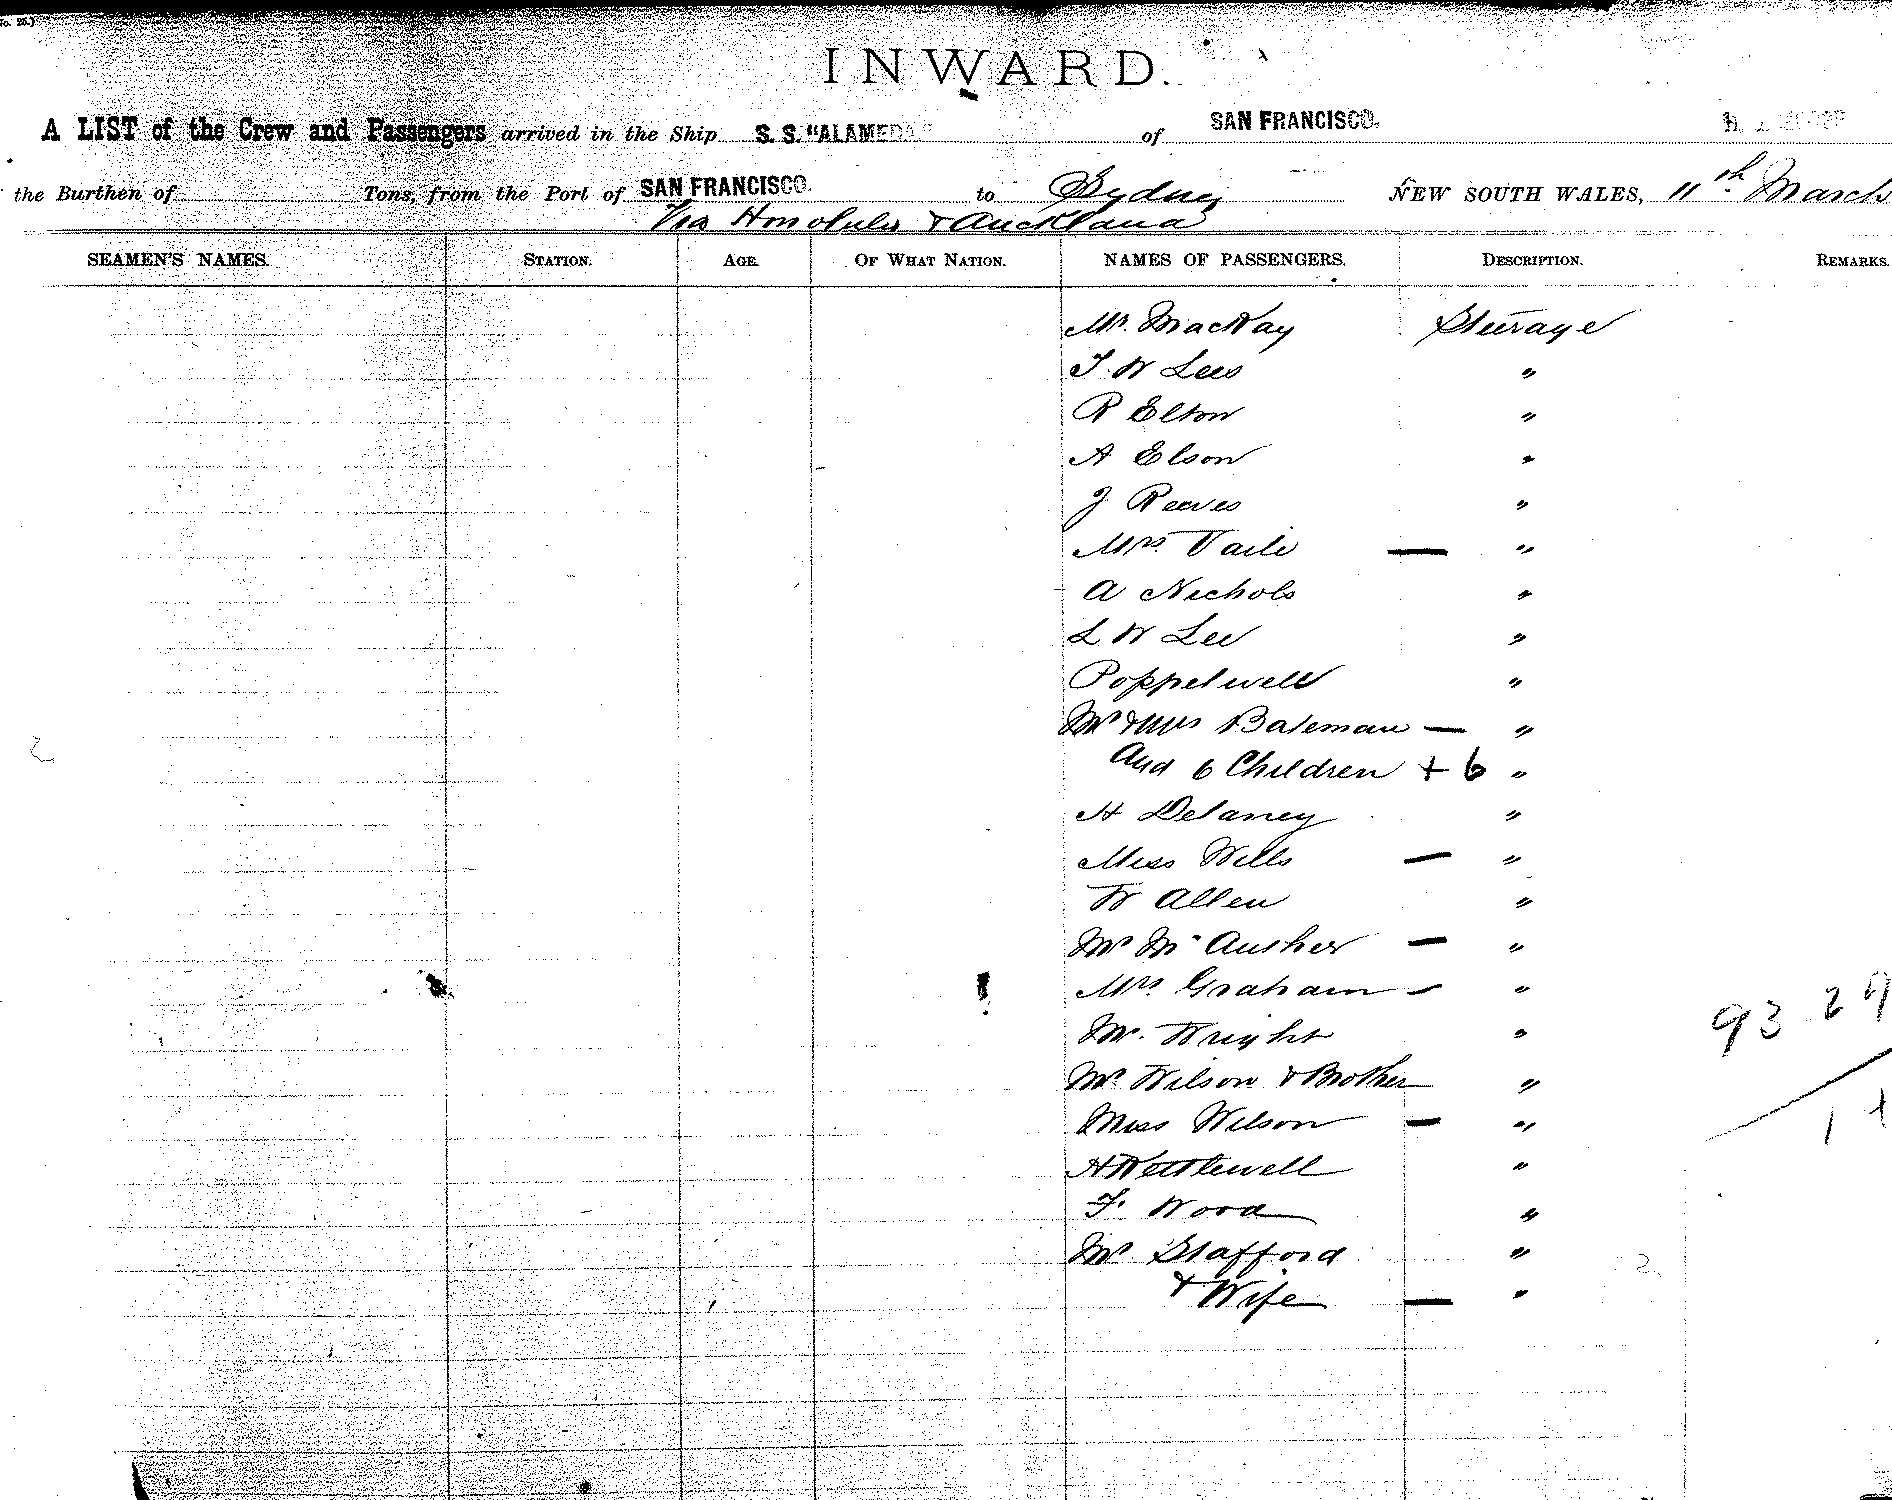 INWARD.
A LIST of the Crew and Passengers arrived in the Ship S. S. "ALAMEDA" of SAN FRANCISCO.
the Burthen of Tons, from the Port of SAN FRANCISCO. to Sydney NEW SOUTH WALES, 11th March
Via Honolulu & Auckland
SEAMEN'S NAMES. STATION. AGE. OF WHAT NATION. NAMES OF PASSENGERS. DESCRIPTION. REMARKS.
Mr. MacKay Steerage
T W Lees "
R Elton "
A Elson "
J Reeves "
Mrs. Vaile — "
A Nichols "
L W Lee "
Poppelwell "
Mr & Mrs Bateman — "
And 6 Children + 6 "
H Delaney "
Miss Wills — "
W Allen "
Mr Mc — "
Mrs. Graham — "
Mr. Wright "
Mr Wilson & Brother "
Miss Wilson — "
H Kettlewell "
F. Wood "
Mr Stafford "
& Wife — "
93 29